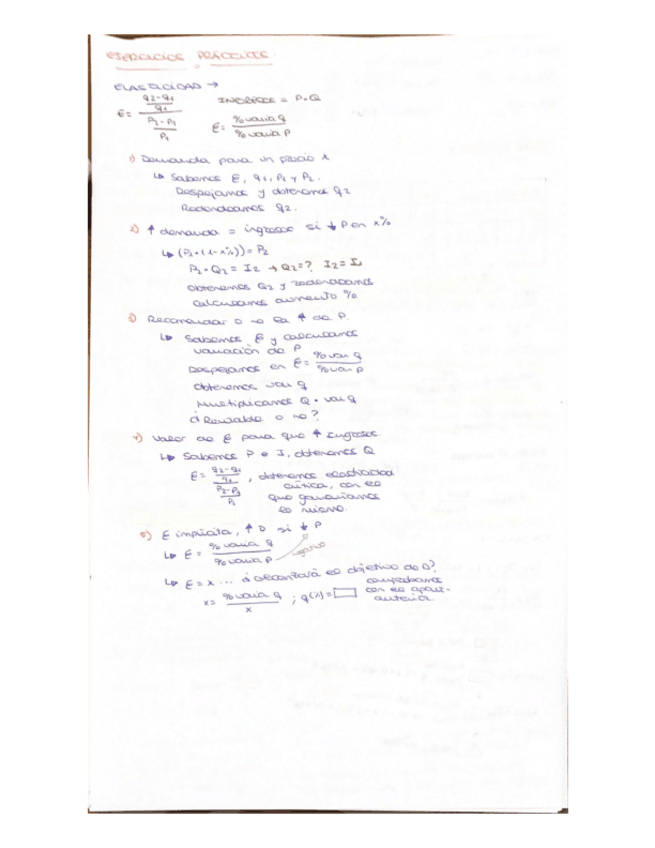 EJERCICIOS PRÁCTICOS.
ELASTICIDAD →
E = ((q2-q1)/q1)/((P2-P1)/P1) INGRESOS = P·Q
E = % varia q / % varia P
1) Demanda para un precio x
↳ Sabemos E, q1, P1 y P2.
Despejamos y obtenemos q2
Redondeamos q2.
2) ↑ demanda = ingresos si ↓ P en x%
↳ (P1·(1-x%)) = P2
P2·Q2 = I2 → Q2=? I2 = I1
obtenemos Q2 y redondeamos
calculamos aumento %
3) Recomendar o no la ↑ de P.
↳ Sabemos E y calculamos
variación de P
Despejamos en E = % var q / % var P
obtenemos var q
Multiplicamos Q · var q
¿Rentable o no?
4) Valor de E para que ↑ ingresos
↳ Sabemos P e I, obtenemos Q
E = ((q2-q1)/q1)/((P2-P1)/P1), obtenemos elasticidad
crítica, con la
que ganaríamos
lo mismo.
5) E implícita, ↑ D si ↓ P
↳ E = % varia q / % varia P
↳ E = x ... ¿alcanzará el objetivo de D?
x = % varia q / x ; q(%) = comprobamos
con el apart-
anterior